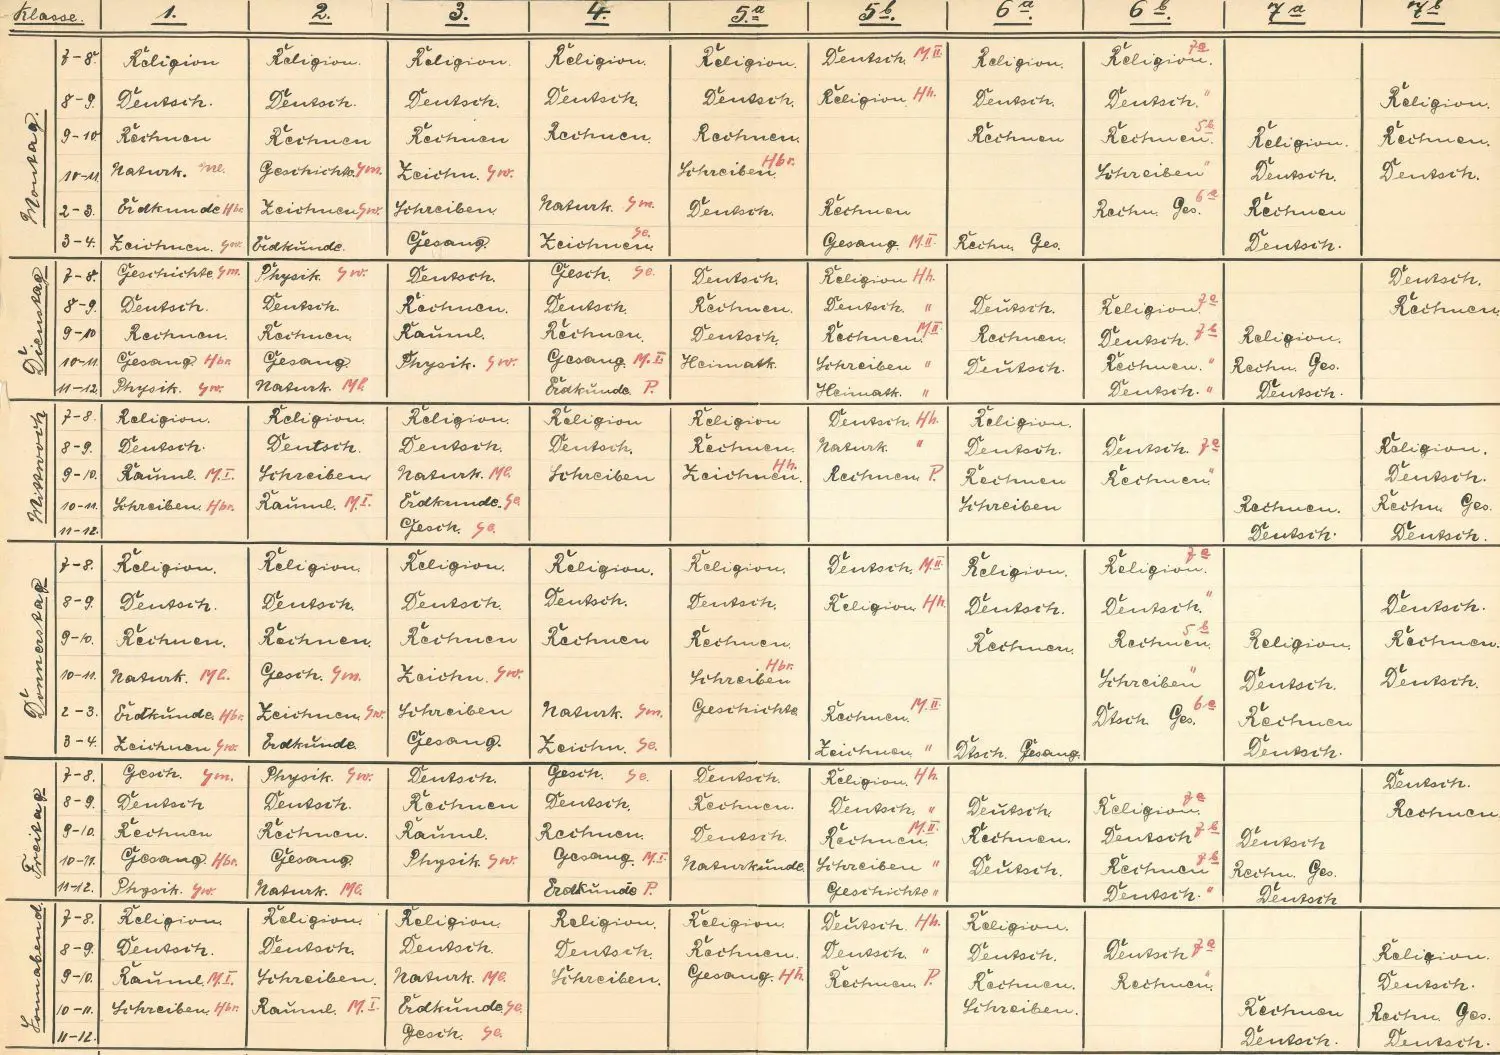 Klasse. 1. 2. 3. 4. 5.a 5b. 6a. 6b. 7a 7b
Montag.
7-8. Religion Religion. Religion. Religion. Religion. Deutsch. M.II Religion. Religion. 7a
8-9. Deutsch. Deutsch. Deutsch. Deutsch. Deutsch. Religion Hh. Deutsch. Deutsch. " Religion.
9-10 Rechnen Rechnen Rechnen Rechnen. Rechnen. Rechnen Rechnen. 5b Religion. Rechnen.
10-11. Naturk. Ml. Geschichte. Gm. Zeichn. Gw. Schreiben. Hbr. Schreiben " Deutsch. Deutsch.
2-3. Erdkunde Hbr. Zeichnen Gw. Schreiben. Naturk. Gm. Deutsch. Rechnen Rechn. Ges. 6a Rechnen
3-4. Zeichnen. Gw. Erdkunde. Gesang. Zeichnen. Se. Gesang. M.II. Rechn. Ges. Deutsch.
Dienstag
7-8. Geschichte Gm. Physik. Gw. Deutsch. Gesch. Se. Deutsch. Religion Hh. Deutsch.
8-9. Deutsch. Deutsch. Rechnen. Deutsch. Rechnen. Deutsch " Deutsch. Religion. 7a Rechnen.
9-10 Rechnen. Rechnen. Rauml. Rechnen. Deutsch. Rechnen. M.II Rechnen. Deutsch. 7b Religion.
10-11. Gesang. Hbr. Gesang. Physik. Gw. Gesang. M.I. Heimatk. Schreiben " Deutsch. Rechnen. " Rechn. Ges.
11-12. Physik. Gw. Naturk. Ml. Erdkunde P. Heimatk. " Deutsch. " Deutsch.
Mittwoch
7-8. Religion. Religion. Religion. Religion Religion Deutsch. Hh. Religion.
8-9. Deutsch. Deutsch. Deutsch. Deutsch. Rechnen. Naturk " Deutsch. Deutsch. 7a Religion.
9-10. Rauml. M.I. Schreiben. Naturk. Ml. Schreiben Zeichnen. Hh. Rechnen. P. Rechnen Rechnen. " Deutsch.
10-11. Schreiben. Hbr. Rauml. M.I. Erdkunde. Se. Schreiben Rechnen. Rechn. Ges.
11-12. Gesch. Se. Deutsch. Deutsch.
Donnerstag
7-8. Religion. Religion. Religion. Religion. Religion. Deutsch. M.II Religion. Religion. 7a
8-9. Deutsch. Deutsch. Deutsch. Deutsch. Deutsch. Religion. Hh. Deutsch. Deutsch. " Deutsch.
9-10. Rechnen. Rechnen. Rechnen Rechnen Rechnen. Rechnen. Rechnen. 5b Religion. Rechnen.
10-11. Naturk. Ml. Gesch. Gm. Zeichn. Gw. Schreiben Hbr. Schreiben " Deutsch. Deutsch.
2-3. Erdkunde. Hbr. Zeichnen. Gw. Schreiben Naturk. Gm. Geschichte Rechnen. M.II Dtsch. Ges. 6a Rechnen
3-4. Zeichnen Gw. Erdkunde. Gesang. Zeichn. Se. Zeichnen " Dtsch. Gesang. Deutsch.
Freitag
7-8. Gesch. Gm. Physik. Gw. Deutsch. Gesch. Se. Deutsch. Religion. Hh. Deutsch.
8-9. Deutsch Deutsch. Rechnen Deutsch. Rechnen. Deutsch. " Deutsch. Religion. 7a Rechnen
9-10. Rechnen Rechnen. Rauml. Rechnen. Deutsch. Rechnen. M.II. Rechnen. Deutsch 7b Deutsch
10-11. Gesang. Hbr. Gesang. Physik. Gw. Gesang. M.I. Naturkunde. Schreiben " Deutsch. Rechnen 7b Rechn. Ges.
11-12. Physik. Gw. Naturk. Ml. Erdkunde P. Geschichte " Deutsch. " Deutsch
Sonnabend.
7-8. Religion. Religion. Religion. Religion. Religion. Deutsch. Hh. Religion.
8-9. Deutsch. Deutsch. Deutsch. Deutsch. Rechnen. Deutsch. " Deutsch. Deutsch 7a Religion.
9-10. Rauml. M.I. Schreiben. Naturk. Ml. Schreiben. Gesang. Hh. Rechnen. P. Rechnen. Rechnen. " Deutsch.
10-11. Schreiben. Hbr. Rauml. M.I. Erdkunde. Se. Schreiben. Rechnen Rechn. Ges.
11-12. Gesch. Se. Deutsch. Deutsch.